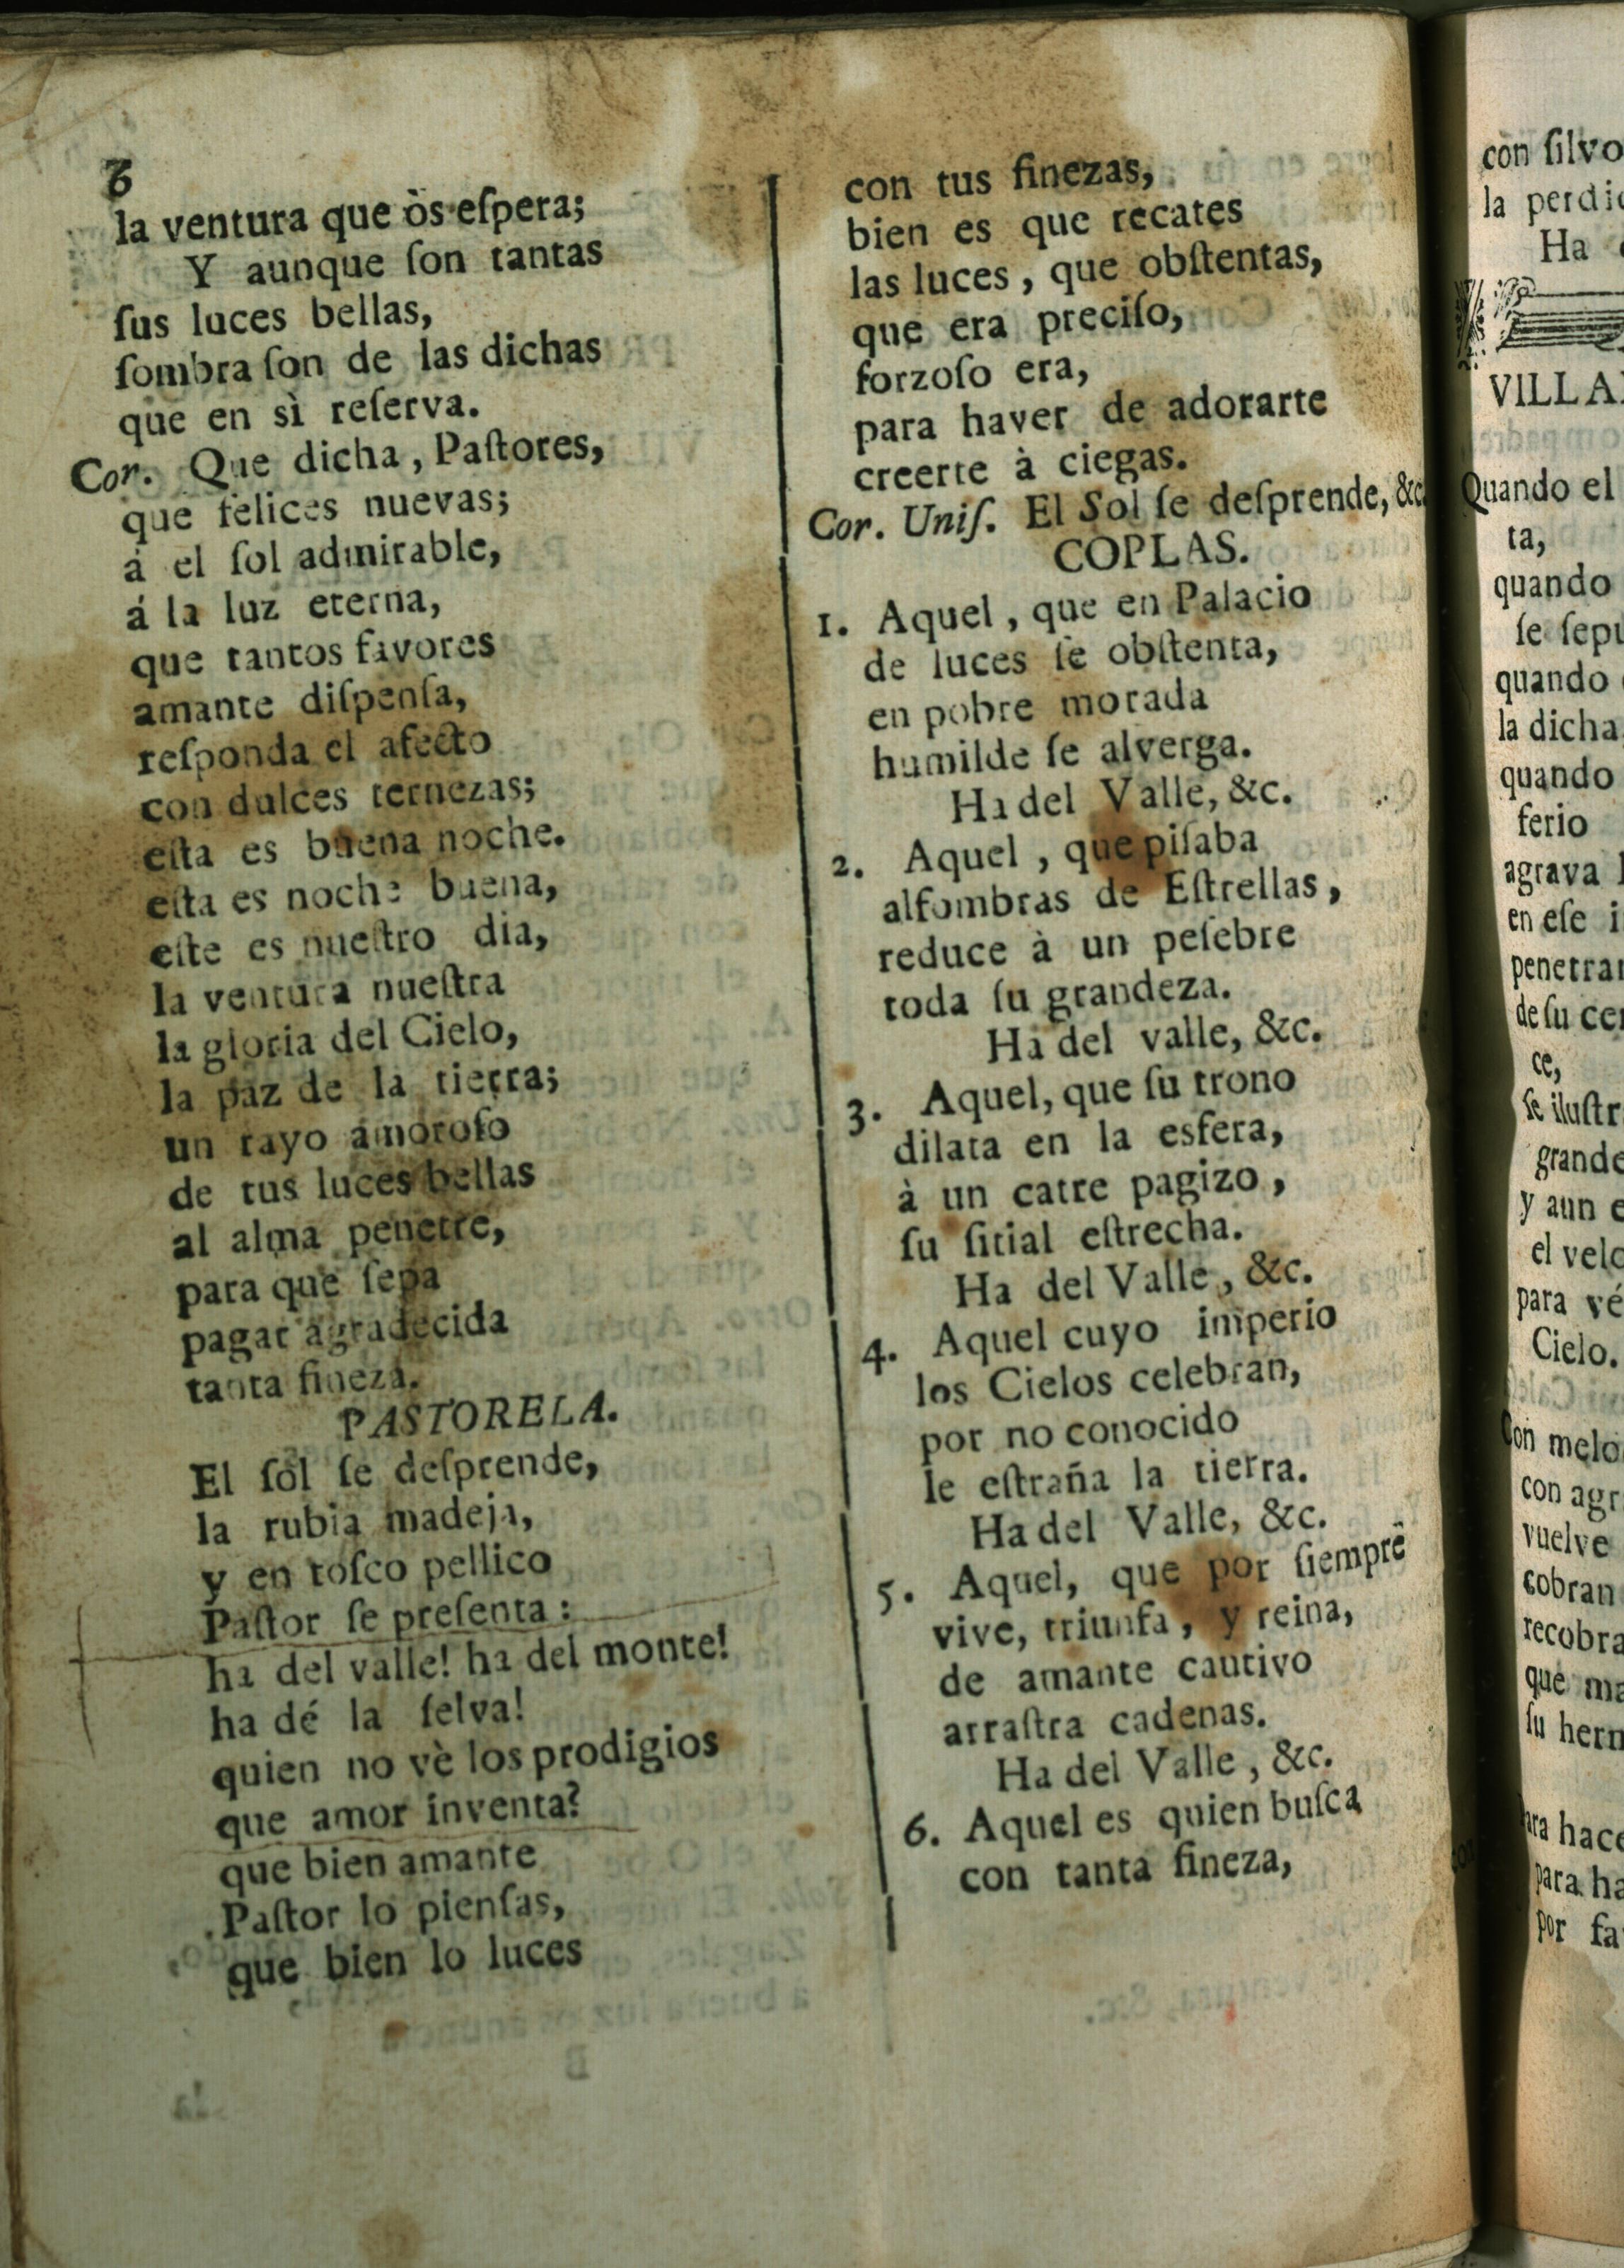 la ventura que òs eſpera;
Y aunque ſon tantas
ſus luces bellas,
ſombra ſon de las dichas
que en sì reſerva.
Cor. Que dicha, Paſtores,
que felices nuevas;
á el ſol admirable,
á la luz eterna,
que tantos favores
amante diſpenſa,
reſponda el afecto
con dulces ternezas;
eſta es buena noche.
eſta es noche buena,
eſte es nueſtro dia,
la ventura nueſtra
la gloria del Cielo,
la paz de la tierra;
un rayo amoroſo
de tus luces bellas
al alma penetre,
para que ſepa
pagar agradecida
tanta fineza.
PASTORELA.
El ſol ſe deſprende,
la rubia madeja,
y en toſco pellico
Paſtor ſe preſenta:
ha del valle! ha del monte!
ha dé la ſelva!
quien no vè los prodigios
que amor inventa?
que bien amante
Paſtor lo pienſas,
que bien lo luces
con tus finezas,
bien es que recates
las luces, que obſtentas,
que era preciſo,
forzoſo era,
para haver de adorarte
creerte à ciegas.
Cor. Uniſ. El Sol ſe deſprende, &c.
COPLAS.
1. Aquel, que en Palacio
de luces ſe obſtenta,
en pobre morada
humilde ſe alverga.
Ha del Valle, &c.
2. Aquel, que piſaba
alfombras de Eſtrellas,
reduce à un peſebre
toda ſu grandeza.
Ha del valle, &c.
3. Aquel, que ſu trono
dilata en la esfera,
à un catre pagizo,
ſu ſitial eſtrecha.
Ha del Valle, &c.
4. Aquel cuyo imperio
los Cielos celebran,
por no conocido
le eſtraña la tierra.
Ha del Valle, &c.
5. Aquel, que por ſiempre
vive, triunfa, y reina,
de amante cautivo
arraſtra cadenas.
Ha del Valle, &c.
6. Aquel es quien buſca
con tanta fineza,
con ſilvo
la
Ha
Quando el
ta,
quando
quando
la dicha
quando
ferio
agrava
en eſe
de ſu
ce,
y aun
para
Cielo.
Con
con
vuelve
cobran
que
ſu
para
por